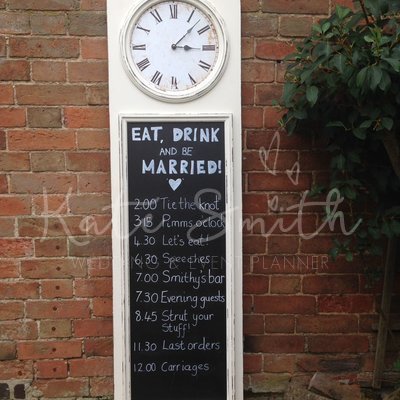 EAT, DRINK
AND BE
MARRIED!
2.00 Tie the knot
3.15 Pimms o'clock
4.30 Let's eat!
6.30 Speeches
7.00 Smithy's bar
7.30 Evening guests
8.45 Strut your
Stuff!
11.30 Last orders
12.00 Carriages
Kate Smith
WEDDING & EVENT PLANNER